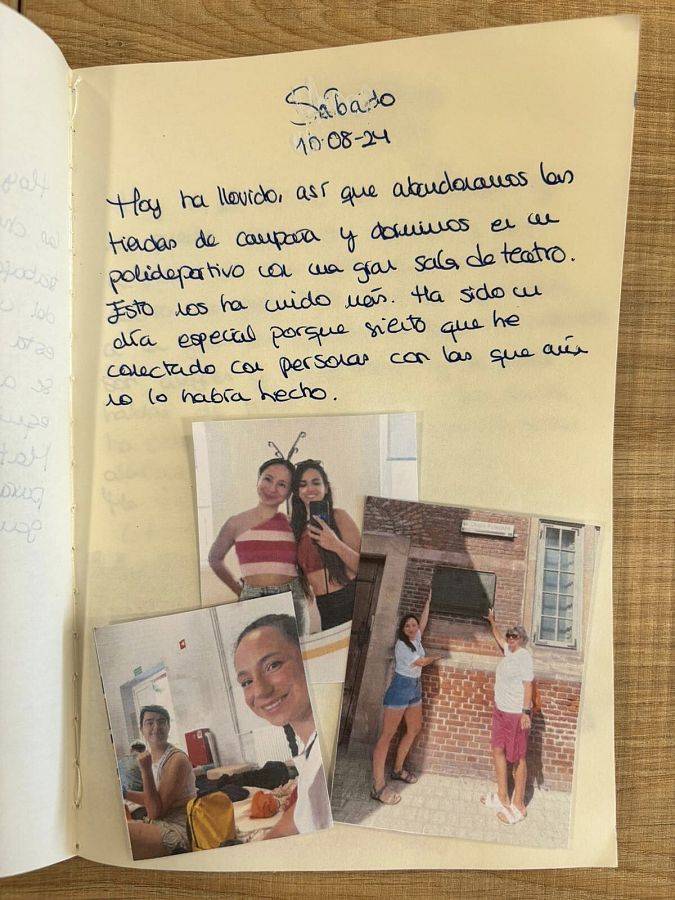 Sábado
10-08-24
Hoy ha llovido, así que abandonamos las
tiendas de campaña y dormimos en un
polideportivo con una gran sala de teatro.
Esto nos ha unido más. Ha sido un
día especial porque siento que he
conectado con personas con las que aún
no lo había hecho.